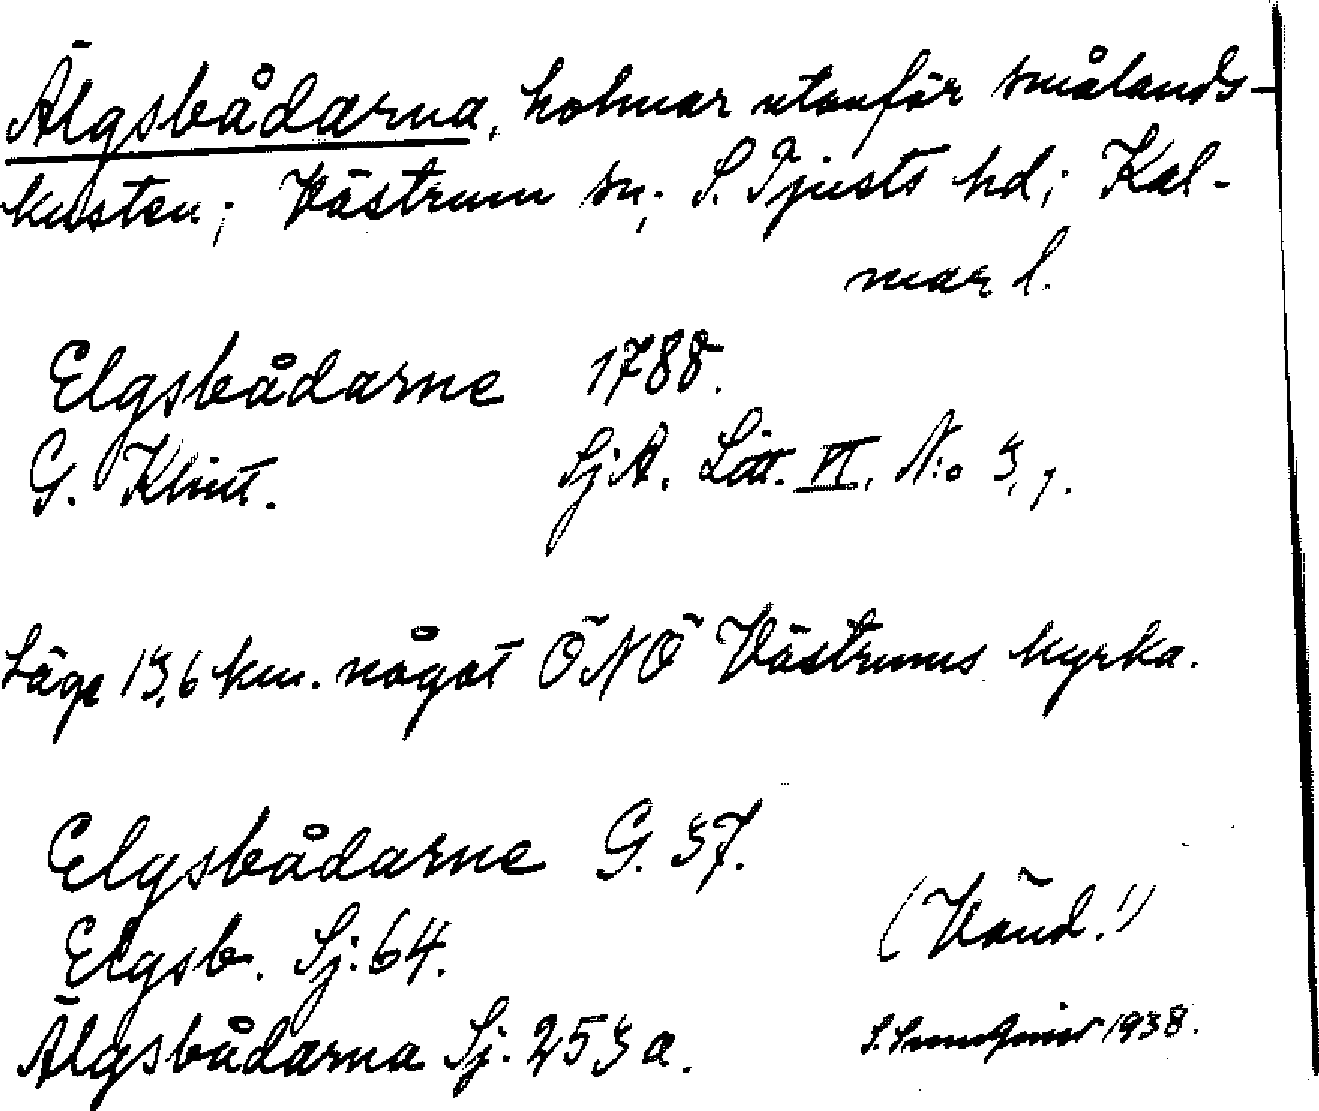 Älgsbådarna, holmar utanför smålands-
kusten; Västrum sn; S. Tjusts hd; Kal-
mar l.
Elgsbådarne 1788.
G. Klint. Sj.A. Litt. VI. N:o 3, 1.
Läge 13,6 km. något ÖNÖ Västrums kyrka.
Elgsbådarne G. 37.
Elgsb. Sj: 64.
(Vänd!)
Älgsbådarna Sj. 253 a.
1938.